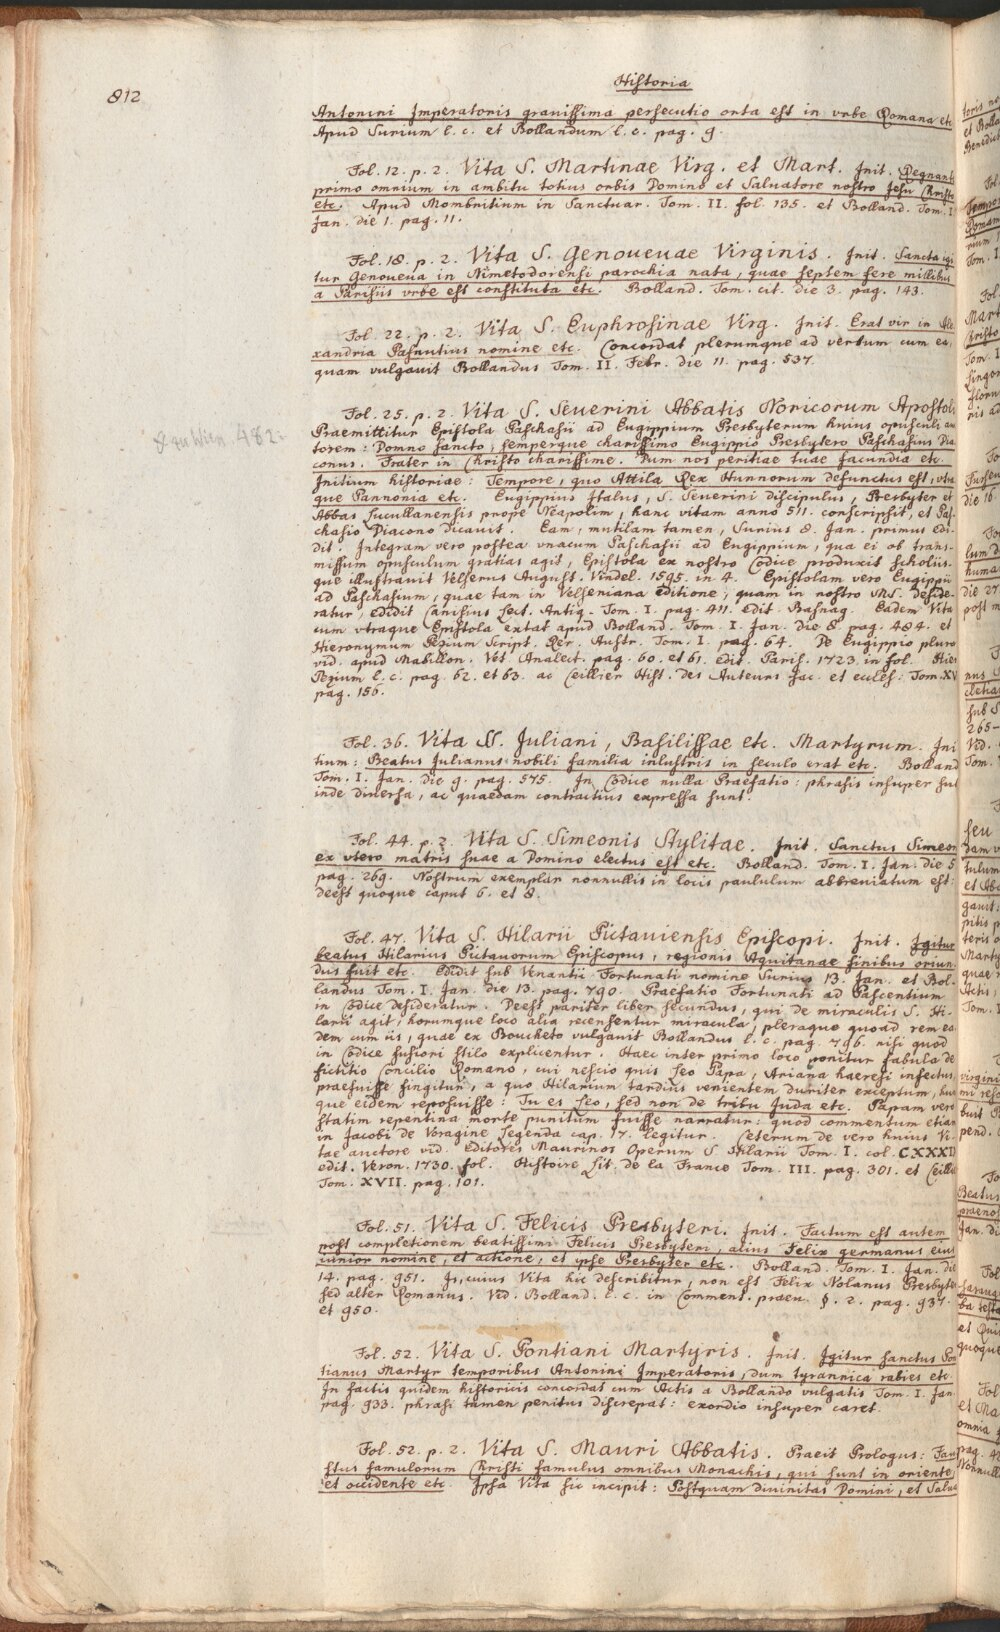 812
Historia
Antonini Imperatoris grauissima persecutio orta est in vrbe Romana etc
Apud Surium l. c. et Bollandum l. c. pag. 9.
Fol. 12. p. 2. Vita S. Martinae Virg. et Mart. Init. Regnante
primo omnium in ambitu totius orbis Domino et Saluatore nostro Jesu Christo
etc. Apud Mombritium in Sanctuar. Tom. II. fol. 135. et Bolland. Tom. I.
Jan. die 1. pag. 11.
Fol. 18. p. 2. Vita S. Genoueuae Virginis. Init. Sancta igi
tur Genoueua in Nimetodorensi parochia nata, quae septem fere millibus
a Parisiis vrbe est constituta etc. Bolland. Tom. cit. die 3. pag. 143.
Fol. 22. p. 2. Vita S. Euphrosinae Virg. Init. Erat vir in Ale
xandria Pafnutius nomine etc. Concordat plerumque ad verbum cum ea,
quam vulgauit Bollandus Tom. II. Febr. die 11. pag. 537.
Fol. 25. p. 2. Vita S. Seuerini Abbatis Noricorum Apostoli
Praemittitur Epistola Paschasii ad Eugippium Presbyterum huius opusculi au
482.
torem: Domno sancto, semperque charissimo Eugippio Presbytero Paschasius Dia
conus. Frater in Christo charissime. Dum nos peritiae tuae facundia etc.
Initium historiae: Tempore, quo Attila Rex Hunnorum defunctus est, vtra
que Pannonia etc. Eugippius Italus, S. Seuerini discipulus, Presbyter et
Abbas Lucullanensis prope Neapolim, hanc vitam anno 511. conscripsit, et Pas-
chasio Diacono dicauit. Eam, mutilam tamen, Surius 8. Jan. primus edi-
dit. Integram vero postea vnacum Paschasii ad Eugippium, qua ei ob trans-
missum opusculum gratias agit, Epistola ex nostro Codice produxit scholiis-
que illustrauit Velserus August. Vindel. 1595. in 4. Epistolam vero Eugippii
ad Paschasium, quae tam in Velseriana editione, quam in nostro MS. deside-
ratur, edidit Canisius Lect. Antiq. Tom. I. pag. 411. edit. Basnag. Eadem Vita
cum vtraque Epistola extat apud Bolland. Tom. I. Jan. die 8. pag. 484. et
Hieronymum Pezium Script. Rer. Austr. Tom. I. pag. 64. De Eugippio plura
vid. apud Mabillon. Vet. Analect. pag. 60. et 61. edit. Paris. 1723. in fol. Hier
Pezium l. c. pag. 62. et 63. ac Ceillier Hist. des Auteurs sac. et eccles: Tom. XV
pag. 156.
Fol. 36. Vita SS. Juliani, Basilissae etc. Martyrum. Ini
tium: Beatus Julianus nobili familia inlustris in seculo erat etc. Bolland
Tom. I. Jan. die 9. pag. 575. In Codice nulla Praefatio: phrasis insuper sub
inde diuersa, ac quaedam contractius expressa sunt.
Fol. 44. p. 2. Vita S. Simeonis Stylitae. Init. Sanctus Simeon
ex vtero matris suae a Domino electus est etc. Bolland. Tom. I. Jan. die 5
pag. 269. Nostrum exemplar nonnullis in locis paululum abbreuiatum est:
deest quoque caput 6. et 8.
Fol. 47. Vita S. Hilarii Pictauiensis Episcopi. Init. Igitur
beatus Hilarius Pictauorum Episcopus, regionis Aquitanae finibus oriun
dus fuit etc. Edidit sub Venantii Fortunati nomine Surius 13. Jan. et Bol-
landus Tom. I. Jan. die 13. pag. 790. Praefatio Fortunati ad Pascentium
in Codice desideratur. Deest pariter liber secundus, qui de miraculis S. Hi-
larii agit, horumque loco alia recensentur miracula, pleraque quoad rem ea
dem cum iis, quae ex Boucheto vulgauit Bollandus l. c. pag. 796. nisi quod
in Codice fusiori stilo explicentur. Haec inter primo loco ponitur fabula de
fictitio Concilio Romano, cui nescio quis Leo Papa, Ariana haeresi infectus,
praefuisse fingitur, a quo Hilarium tardius venientem duriter exceptum, hunc
que eidem reposuisse: Tu es Leo, sed non de tribu Juda etc. Papam vero
statim repentina morte punitum fuisse narratur: quod commentum etiam
in Jacobi de Voragine Legenda cap. 17. legitur. Ceterum de vero huius Vi-
tae auctore vid. Editores Maurinos Operum S. Hilarii Tom. I. col. CXXXII
edit. Veron. 1730. fol. Histoire Lit. de la France Tom. III. pag. 301. et Ceillier
Tom. XVII. pag. 101.
Fol. 51. Vita S. Felicis Presbyteri. Init. Factum est autem
post completionem beatissimi Felicis Presbyteri, alius Felix germanus eius
iunior nomine, et actione, et ipse Presbyter etc. Bolland. Tom. I. Jan. die
14. pag. 951. Is, cuius Vita hic describitur, non est Felix Nolanus Presbyter
sed alter Romanus. Vid. Bolland. l. c. in Comment. praeu. §. 2. pag. 937.
et 950.
Fol. 52. Vita S. Pontiani Martyris. Init. Igitur sanctus Pon
tianus Martyr temporibus Antonini Imperatoris, dum tyrannica rabies etc.
In factis quidem historicis concordat cum Actis a Bollando vulgatis Tom. I. Jan.
pag. 933. phrasi tamen penitus discrepat: exordio insuper caret.
Fol. 52. p. 2. Vita S. Mauri Abbatis. Praeit Prologus: Fau
stus famulorum Christi famulus omnibus Monachis, qui sunt in oriente
et occidente etc. Ipsa Vita sic incipit: Postquam diuinitas Domini, et Salua